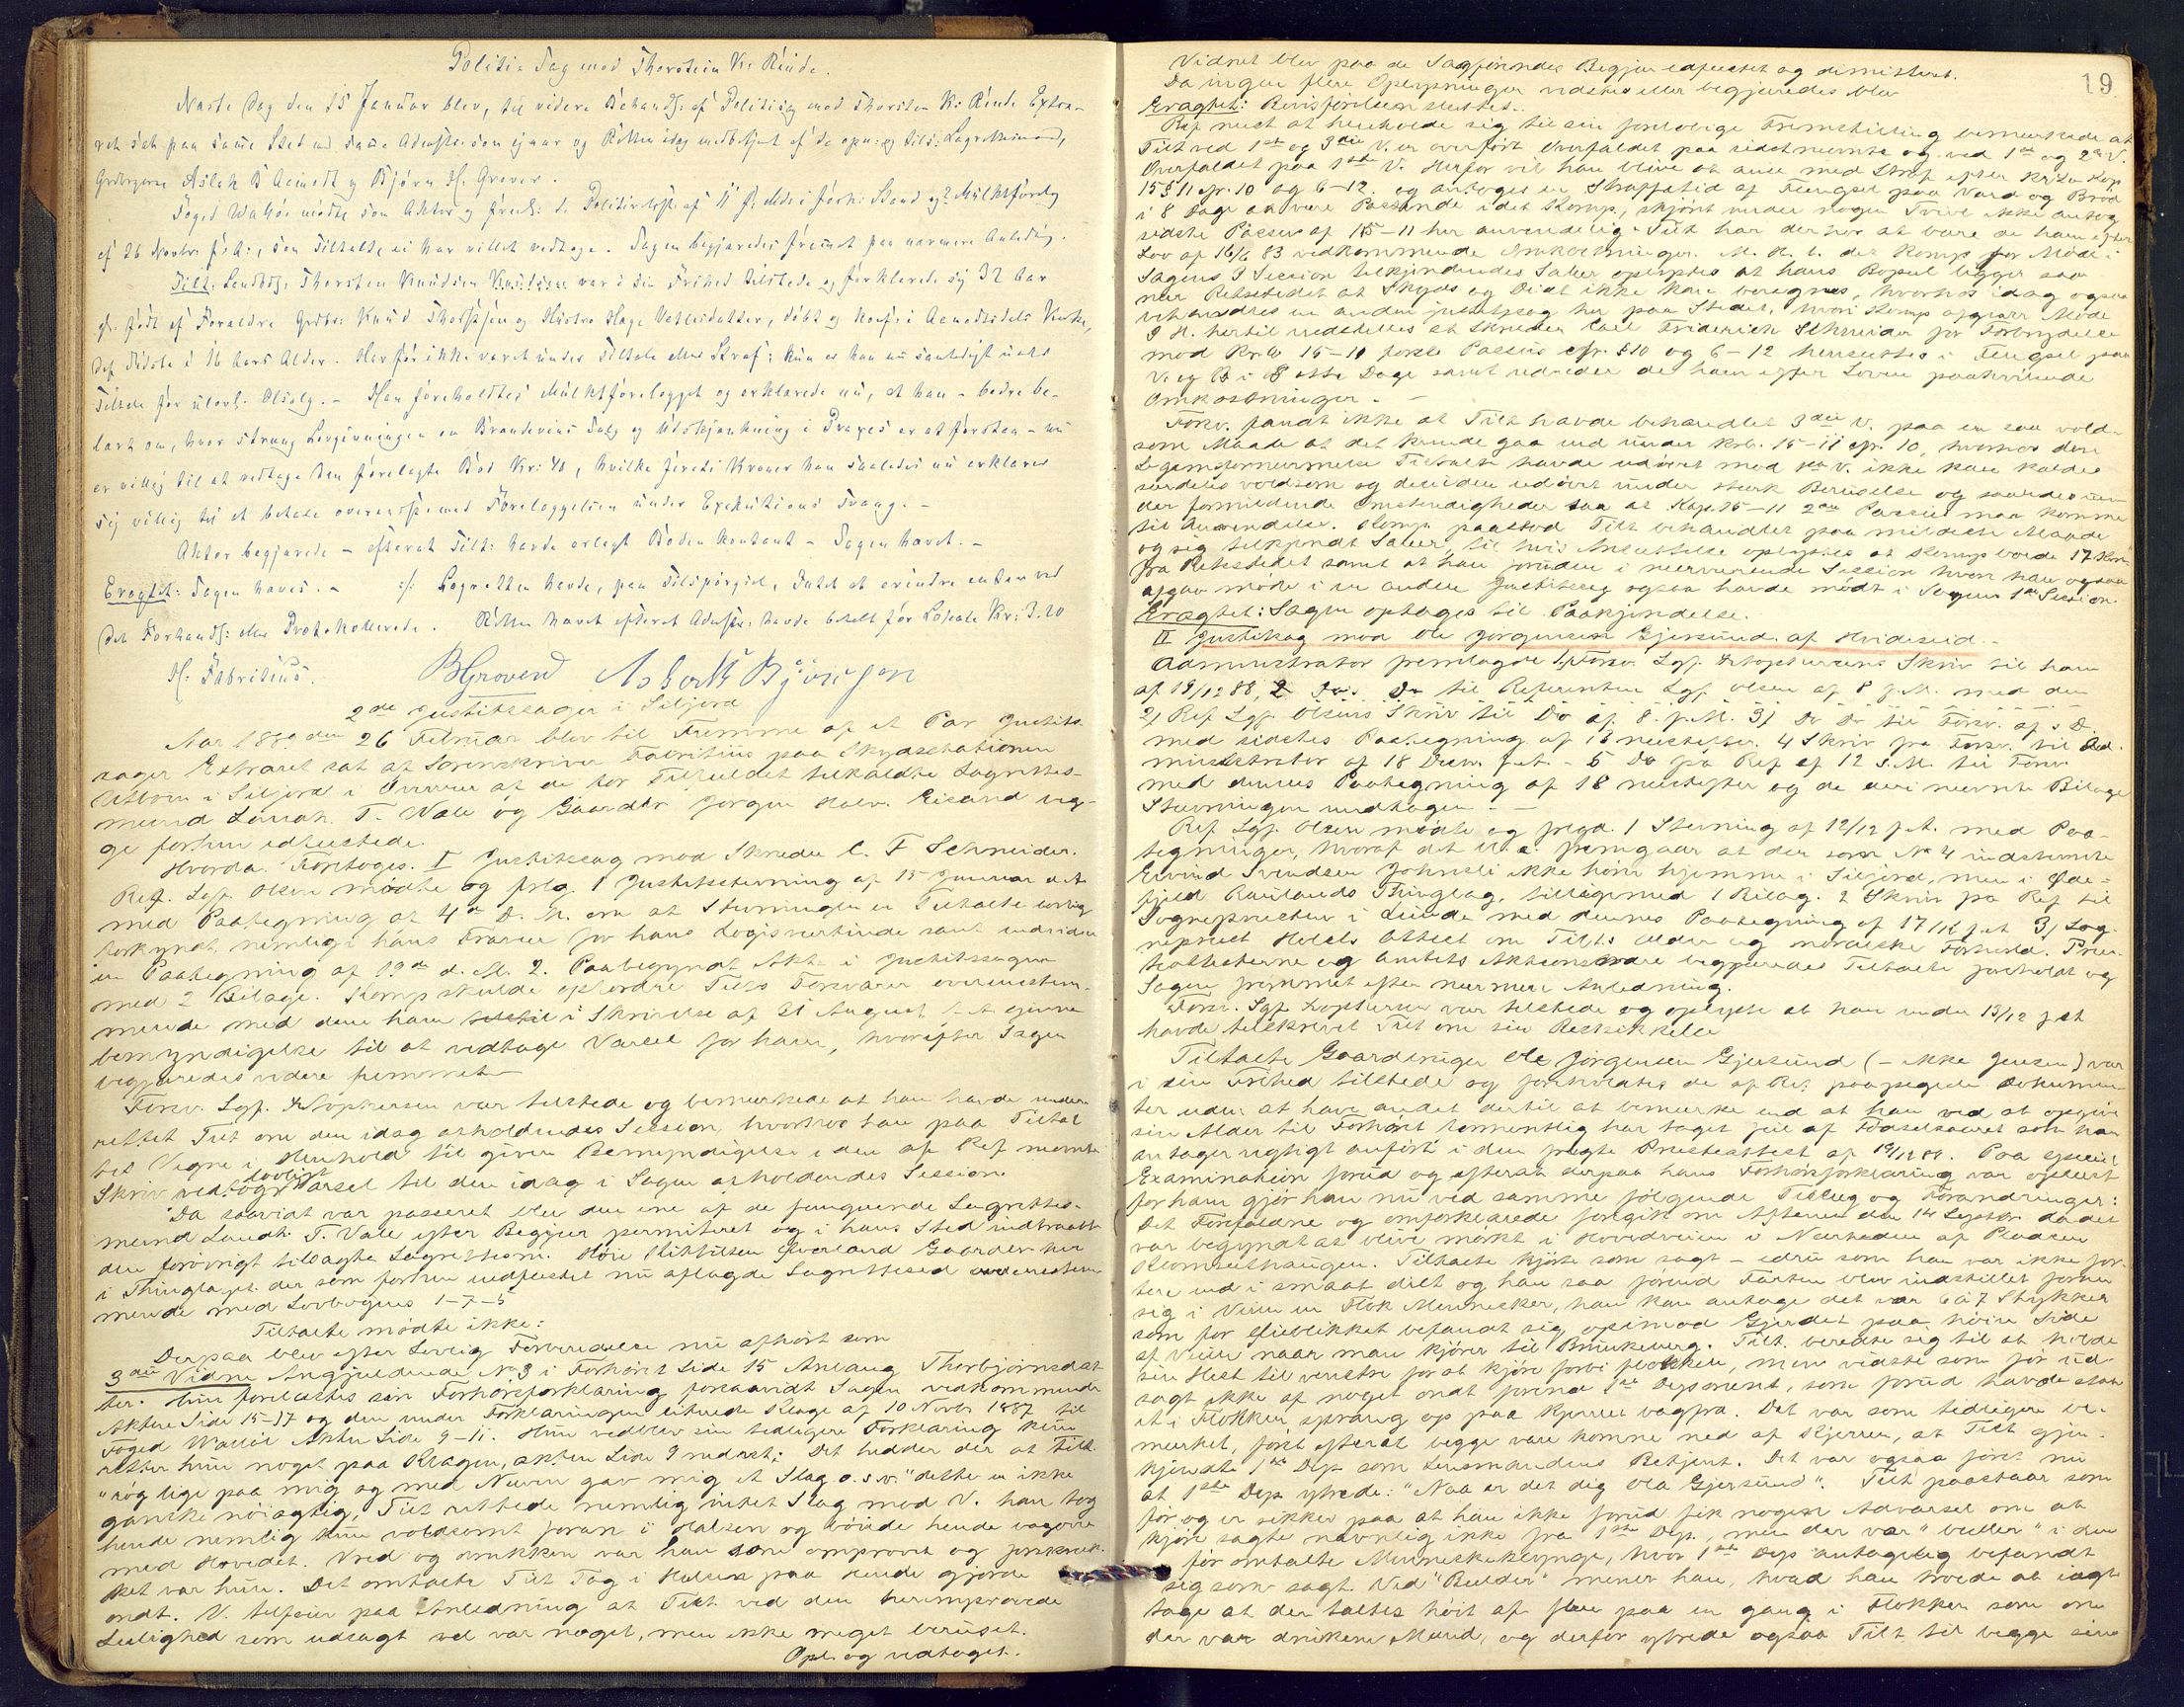 Politi-Sag mod Thorstein K: Rinde.
Næste Dag den 15 Januar blev, til videre Behandl: af Politisag mod Thorsten K: Rinde Extra-
ret sat paa samme Sted med samme Administr. som igaar og Retten idag medbetjent af de opn: og tils: Lagrettemænd,
Grdbrgerne Aslak B Bjørn H. Grover.
Foged Wallöe mødte som Aktor og freml: Mulktforelæg
af 26 Novbr f. A:, som Tiltalte ei har villet vedtage. Sagen begjæredes fremmet paa nærmere Anledng.
Tilt: Thorsten Knudsen var i sin Frihed tilstede og forklarede sig 32 Aar
gl. født af Forældre Grdbr: Knud og Kistro Vetlesdatter, döbt og konf: i Kirke,
det Sidste i 16 Aars Alder. Har för ikke været under Tiltale eller Straf: kun er han nu samtidigt
Tiltale for ulovl. Ölsalg. - Han foreholdtes Mulktforelægget og erklærede nu, at han - bedre be-
lært om, hvor streng Lovgivningen om Brændevins Salg og Udskjænkning i er at forstaa - nu
er villig til at vedtage den forelagte Bod Kr: 40, hvilke forti Kroner han saaledes nu erklærer
sig villig til at betale overensst: med Forelæggelsen under Exekutions Tvang. -
Aktor begjærede - efterat Tilt: havde erlagt Boden kontant - Sagen hævet. -
Eragtet: Sagen hæves. - :/: Lagretten havde, paa Tilspörgsel, Intet at erindre enten ved
det Forhandl: eller Protokollerede. Retten hævet efterat Administr. havde betalt for Lokale Kr: 3.20
H. Fabritius. BGrovend Aslak Björnsen
2de Justitssager i Siljord
Aar 1889 den 26 Februar blev til Fremme af et Par Justits
sager Extraret sat af Sorenskriver Fabritius paa Skydsstationen
Utbøen i Siljord i Overvær af de for Tilfældet tilkaldte Lagrettes-
mænd Landh. T. Vale og Gaardbr Jørgen Halv. Eisand beg-
ge forhen edfæstede.
Hvorda Foretoges. I Justitssag mod Skræder C. F Schneider.
Ref. Sgf. Olsen mødte og frlg. 1 Justitsstevning af 15 Januar d A
med Paategning af 4de D. M. om at Stevningen er Tiltalte lovlig
forkyndt, nemlig i hans Fravær for hans Logisvertinde samt
en Paategning af 19de d. M. 2. Paabegyndt Akt i Justitssagen
med 2 Bilage. Komp skulde opfordre Tilts Forsvarer overensstem-
mende med den ham i Skrivelse af 21 August f A givne
bemyndigelse til at vedtage Varsel for ham, hvorefter Sagen
begjæredes videre fremmet
Forsv. Sgf. Kristophersen var tilstede og bemerkede at han havde under-
rettet Tilt om den idag afholdendes Session, hvorhos han paa Tiltal
tes Vegne i Henhold til given Bemyndigelse i den af Ref nævnte
Skriv vedtog lovligt Varsel til den idag i Sagen afholdendes Session
Da saavidt var passeret blev den ene af de fungerende Lagrettes-
mænd Landh T. Vale efter Begjær permiteret og i hans Sted indtraadt
den forövrigt tilsagte Lagrettesm. Høie Kittilsen Øverland Gaardbr her
i Thinglaget der som forhen uedfæstet nu aflagde Lagretteseed overensstem
mende med Lovbogens 1-7-5
Tiltalte mødte ikke:
Derpaa blev efter Lovlig Forberedelse nu afhørt som
3die Vidne Angjældende N 3 i Forhöret Side 15 Anlaug Thorbjørnsdat
ter. Hun forelæstes sin Forhörsforklaring forsaavidt Sagen vedkommende
Aktens Side 15-17 og den under Forklaringen citerede Klage af 10 Novbr 1887 til
Foged Wallöe Akten Side 9-11. Hun vedblev sin tidligere Forklaring kun
retter hun noget paa Klagen, akten Side 9 nederst: Det hedder der at Tilt
"røg lige paa mig og med Neven gav mig et Slag o.s.v." dette er ikke
ganske nöiagtig, Tilt rettede nemlig intet Slag mod V. han tog
hende nemlig kun voldsomt foran i Halsen og böiede hende bagover
med Hovedet. Vred og var han som omprovet og forskræk-
ket var hun. Det omtalte Tilt Tag i Halsen paa hende gjorde
ondt. V. tilföier paa Anledning at Tilt ved den heromprövede
Leilighed som udsagt vel var noget, men ikke meget beruset.
Opl. og vedtaget.

19
Vidnet blev paa de Sagførendes Begjær edfæstet og dimitteret.
Da ingen flere Oplysninger vidstes eller begjæredes blev
Eragtet: Bevisførelsen sluttes.
Ref næst at henholde sig til sin foreløbige Fremstilling bemerkede at
Tilt ved 1ste og 3die V. er overfört Overfaldet paa sidstnævnte og ved 1ste og 2det V.
Overfaldet paa 1ste V. Herfor vil han blive at anse med Straf efter Krln Kap
15 § 11 jfr. 10 og 6-12, og antoges en Straffetid af Fængsel paa Vand og Bröd
i 8 Dage at være Passende i det Komp., skjønt under nogen Tvivl ikke antog
sidste Passus af 15-11 her anvendelig. Tilt har derhos at bære de ham efter
Lov af 16/6 83 vedkommende Omkostninger. M. H. t. det Komp for Møde i
Sagens I Session tilkjendendes Salær oplystes at hans Bopæl ligger saa
nær Retsstedet at Skyds og Diæt ikke kan beregnes, hvorhos idag ogsaa
behandles en anden justitssag her paa Stedet, hvori Komp afgiver Møde
I H. hertil indstilles at Skræder Carl Friderich Schneider for Forbrydelse
mod Krlo 15-11 forste Passus cfr. § 10 og 6-12 hensættes i Fengsel paa
V. og B i 8 otte Dage samt udreder de ham efter Loven paahvilende
Omkostninger. -
Forsv. fandt ikke at Tilt havde behandlet 3die V. paa en saa vold-
som Maade at det kunde gaa ind under Krb. 15-11 cfr. 10, hvorhos den
Legemsfornærmelse Tiltalte havde udövet mod V. ikke kan kaldes
særdeles voldsom og desuden udövet under stærk Beruselse og saaledes
der formildende Omstendigheder saa at Kap. 15-11 2den Passus maa komme
til Anvendelse. Komp. paastod Tilt behandlet paa mildeste Maade
og sig tilkjendt Salær, til hvis Ansættelse oplystes at Komp boede 17 Km
fra Retsstedet samt at han foruden i nærværende Session hvori han ogsaa
afgav møde i en anden Justitssag ogsaa havde mødt i Sagens 1ste Session.
Eragtet: Sagen optages til Paakjendelse.
II Justitssag mod Ole Jørgensen Gjersund af Hvideseid. -
Administrator fremlagde 1, Forsv. Sgf. Kristophersens Skriv til ham
af 19/12 88, 2 Do Do til Referenten Sgf. Olsen af 8 f. M. med den
2, Ref Sgf. Olsens Skriv til Do af 8. f. M. 3, Do Do til Forsv. af s D.
med sidstes Paategning af 13 næstefter. 4 Skriv fra Forsv. til Ad-
ministrator af 18 Decbr. f. A. - 5 Do fra Ref af 12 s. M. til Forsv.
med dennes Paategning af 18 næstefter og de deri nævnte Bilage
Stevningen undtagen - -
Ref. Sgf. Olsen mødte og frlgd. 1 Stevning af 12/12 f. A. med Paa-
tegninger, hvoraf det bl. a. fremgaar at den som No 4 indstevnte
Eivind Svendsen Johnsli ikke hører hjemme i Siljord, men i Øde-
fjeld Raulands Thinglag, tilligemed 1 Bilag. 2 Skriv fra Ref til
Sognepresten i Lunde med dennes Paategning af 17/12 f. A 3, Sog-
neprest Holsts Attest om Tilts Alder og moralske Forhold. Præs-
teattesterne og Amtets Aktionsordre begjæredes Tiltalte foreholdt og
Sagen fremmet efter nærmere Anledning.
Forsv. Sgf. Kristophersen var tilstede og oplyste at han under 13/12 f A
havde tilskrevet Tilt om sin Beskikkelse
Tiltalte Gaardbruger Ole Jørgensen Gjersund (- ikke Jensen) var
i sin Frihed tilstede og foreholdtes de af Ref. paapegede Dokumen-
ter uden at have andet dertil at bemerke end at han ved at opgive
sin Alder til Forhöret formentlig har taget feil af Födselsaaret som han
antager rigtigt anført i den frlagte Presteattest af 19/12 88. Paa speciel
Examination forud og efterat derpaa hans Forhörsforklaring var oplæst
for ham gjør han nu ved samme følgende Tillæg og Forandringer:
Det Forefaldne og omforklarede foregik om Aftenen den 14 Septbr. da det
var begyndt at blive mørkt i Hovedveien i Nærheden af Pladsen
Klomsethaugen. Tiltalte kjörte som sagt - edru som han var ikke for-
tere end i smaat dilt og han saa forend Farten blev indstillet foran
sig i Veien en Flok Mennesker, han kan antage det var 6 à 7 Stykker
som for Øieblikket befandt sig opimod Gjerdet paa høire Side
af Veien naar man kjører til Brunkeberg. Tilt. beredte sig til at holde
sin Hest til venstre for at kjøre forbi flokken, men vidste som för ud-
sagt ikke af noget ondt førend 1ste Deponent, som forud havde staa-
et i Flokken sprang op paa Kjerren bagfra. Det var som tidligere be-
merket, først efterat begge vare komne ned af Kjerren, at Tilt gjen-
kjendte 1ste Dep som Lensmandens Betjent. Det var ogsaa först nu
at 1ste Dep ytrede: "Naa er det dig Ola Gjersund". Tilt paastaar som
för og er sikker paa at han ikke forud fik nogen Advarsel om at
kjøre sagte navnlig ikke fra 1ste Dep., men der var "bulder" i den
för omtalte Menneskeklynge, hvor 1ste Dep antagelig befandt
sig som sagt. Ved "Bulder" mener han, hvad han troede at iagt-
tage at der taltes höit af flere paa en gang i Flokken som om
der var drukene Mænd, og derfor ytrede ogsaa Tilt til begge sine